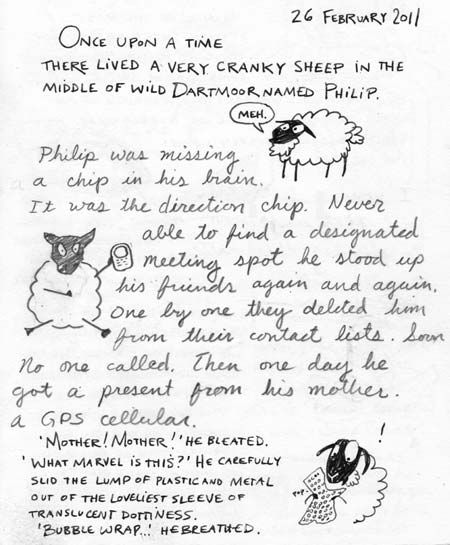 26 FEBRUARY 2011
ONCE UPON A TIME
THERE LIVED A VERY CRANKY SHEEP IN THE
MIDDLE OF WILD DARTMOOR NAMED PHILIP.
MEH.
Philip was missing
a chip in his brain.
It was the direction chip. Never
able to find a designated
meeting spot he stood up
his friends again and again.
One by one they deleted him
from their contact lists. Soon
no one called. Then one day he
got a present from his mother.
a GPS cellular.
'MOTHER! MOTHER!' HE BLEATED.
'WHAT MARVEL IS THIS?' HE CAREFULLY
SLID THE LUMP OF PLASTIC AND METAL
OUT OF THE LOVELIEST SLEEVE OF
TRANSLUCENT DOTTINESS.
'BUBBLE WRAP..' HE BREATHED.
!
POP.